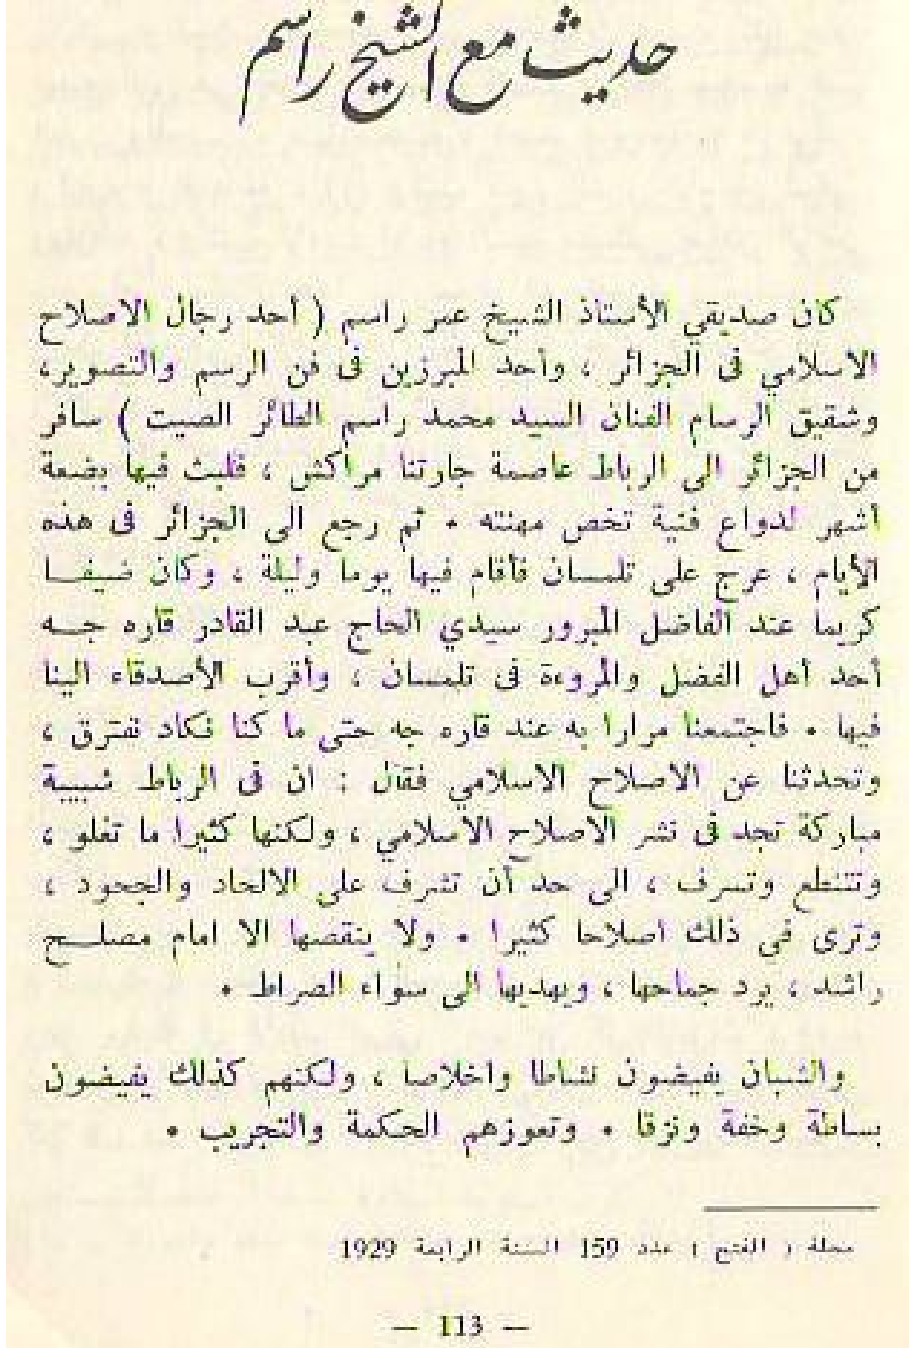 حديث مع الشيخ راسم
كان صديقي الأستاذ الشيخ عمر راسم ( أحد رجال الاصلاح
الاسلامي فى الجزائر ، وأحد المبرزين فى فن الرسم والتصوير،
وشقيق الرسام الفنان السيد محمد راسم الطائر الصيت ) سافر
من الجزائر الى الرباط عاصمة جارتنا مراكش ، فلبث فيها بضعة
أشهر لدواع فنية تخص مهنته • ثم رجع الى الجزائر فى هذه
الأيام ، عرج على تلمسان فأقام فيها يوما وليلة ، وكان ضيفـا
كريما عند الفاضل المبرور سيدي الحاج عبد القادر قاره جـه
أحد أهل الفضل والمروءة فى تلمسان ، وأقرب الأصدقاء الينا
فيها • فاجتمعنا مرارا به عند قاره جه حتى ما كنا نكاد نفترق ،
وتحدثنا عن الاصلاح الاسلامي فقال : ان فى الرباط شبيبة
مباركة تجد فى نشر الاصلاح الاسلامي ، ولكنها كثيرا ما تغلو ،
وتتنطع وتسرف ، الى حد أن تشرف على الالحاد والجحود ،
وترى في ذلك اصلاحا كثيرا • ولا ينقصها الا امام مصلـح
راشد ، يرد جماحها ، ويهديها الى سواء الصراط •
والشبان يفيضون نشاطا واخلاصا ، ولكنهم كذلك يفيضون
بساطة وخفة ونزقا • وتعوزهم الحكمة والتجريب •
مجلة ( الفتح ) عدد 159 السنة الرابعة 1929
— 113 —